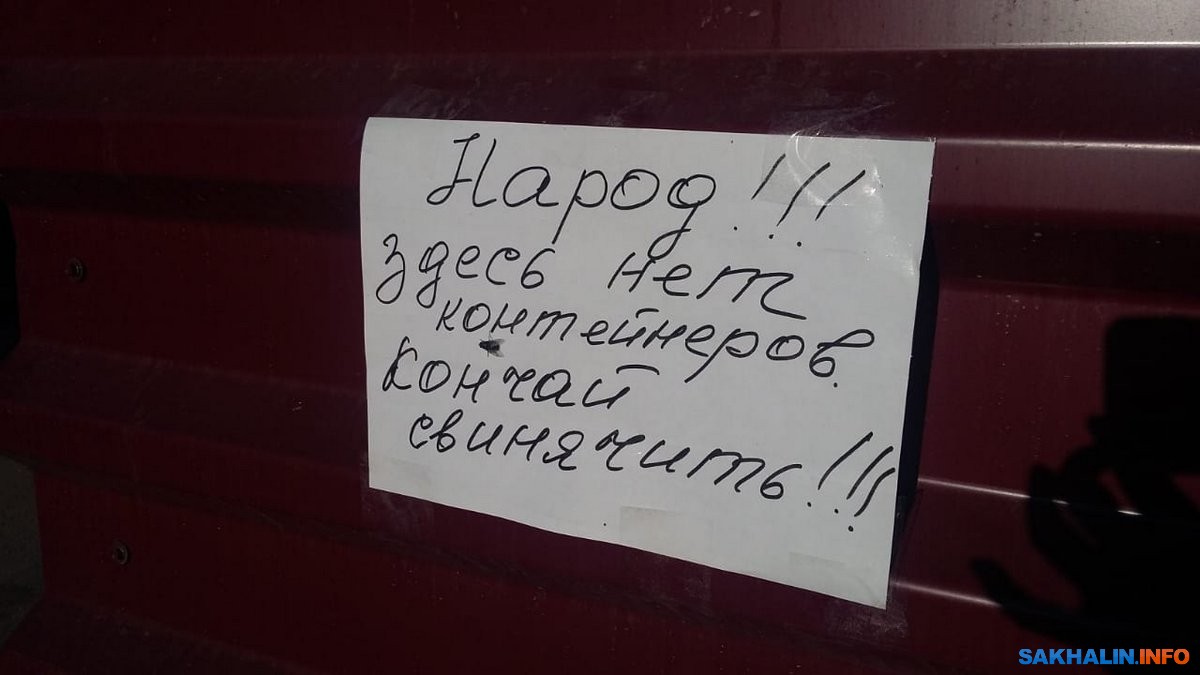 Народ!!!
здесь нет
контейнеров.
Кончай
свинячить!!!
SAKHALIN.INFO